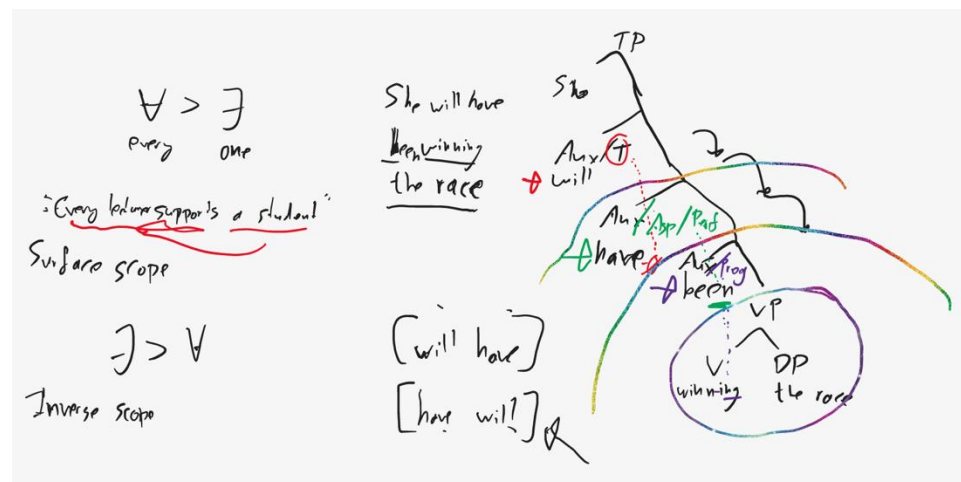 ∀ > ∃
every one
"Every lecturer supports a student"
Surface scope
∃ > ∀
Inverse scope
She will have
been winning
the race
[will have]
[have will]
TP
She
Aux/T
will
Aux/Asp/Perf
have
Aux/Prog
been
VP
V DP
winning the race